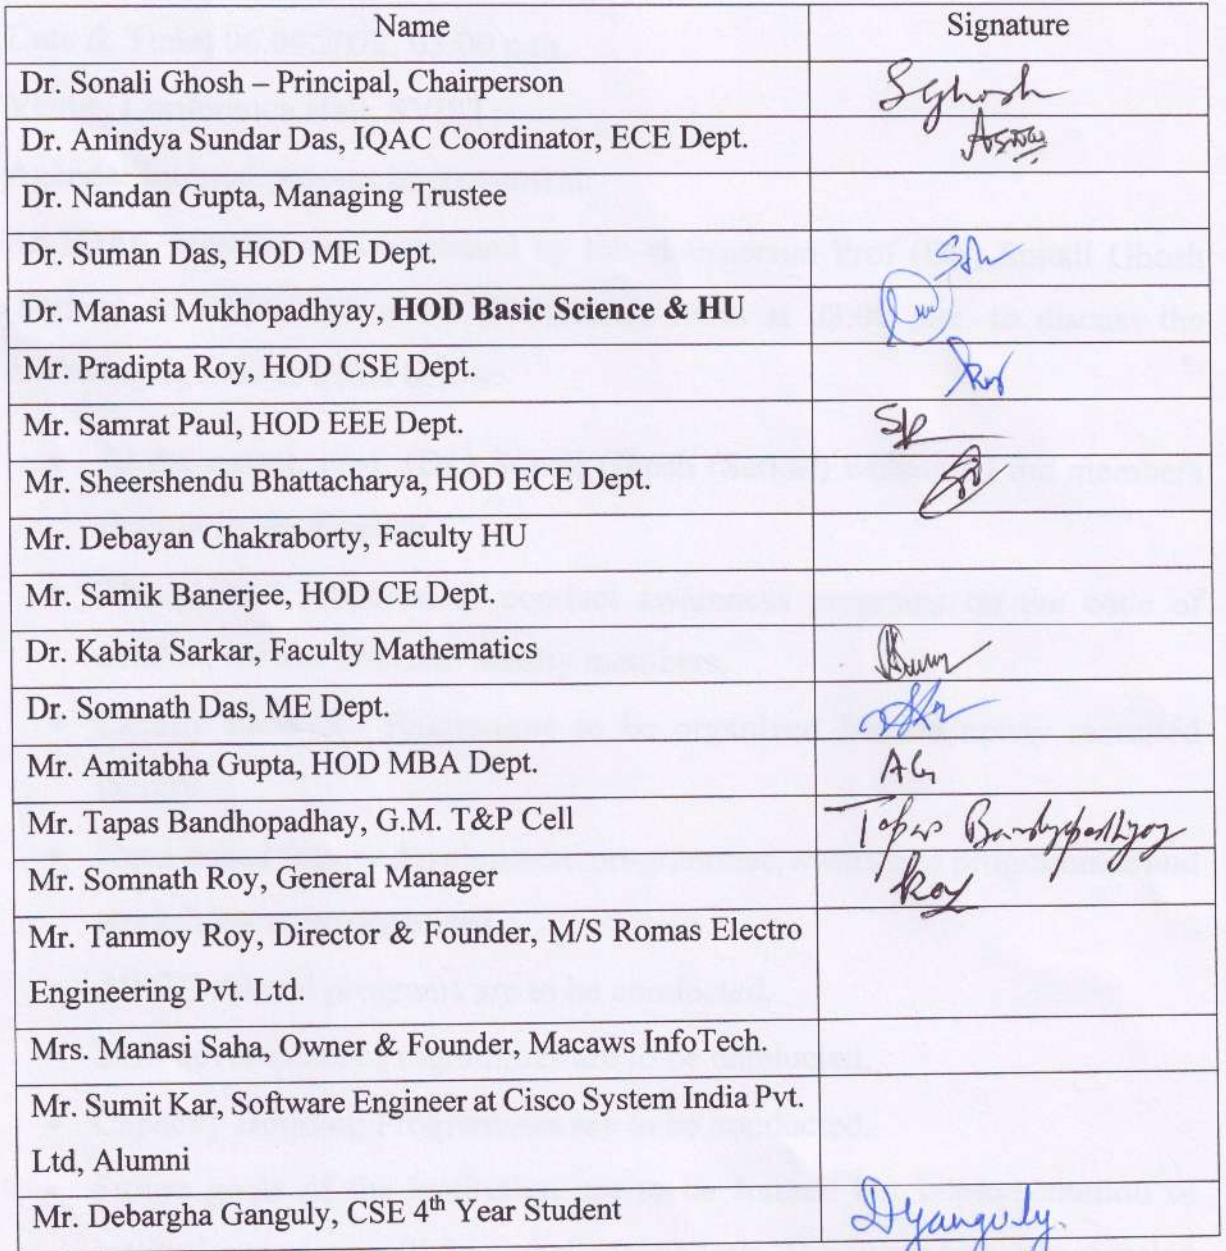 Name Signature
Dr. Sonali Ghosh – Principal, Chairperson SGhosh
Dr. Anindya Sundar Das, IQAC Coordinator, ECE Dept.
Dr. Nandan Gupta, Managing Trustee
Dr. Suman Das, HOD ME Dept.
Dr. Manasi Mukhopadhyay, HOD Basic Science & HU
Mr. Pradipta Roy, HOD CSE Dept.
Mr. Samrat Paul, HOD EEE Dept.
Mr. Sheershendu Bhattacharya, HOD ECE Dept.
Mr. Debayan Chakraborty, Faculty HU
Mr. Samik Banerjee, HOD CE Dept.
Dr. Kabita Sarkar, Faculty Mathematics
Dr. Somnath Das, ME Dept.
Mr. Amitabha Gupta, HOD MBA Dept. AG
Mr. Tapas Bandhopadhay, G.M. T&P Cell Tapas Bandyopadhyay
Mr. Somnath Roy, General Manager Roy
Mr. Tanmoy Roy, Director & Founder, M/S Romas Electro
Engineering Pvt. Ltd.
Mrs. Manasi Saha, Owner & Founder, Macaws InfoTech.
Mr. Sumit Kar, Software Engineer at Cisco System India Pvt.
Ltd, Alumni
Mr. Debargha Ganguly, CSE 4th Year Student DGanguly.